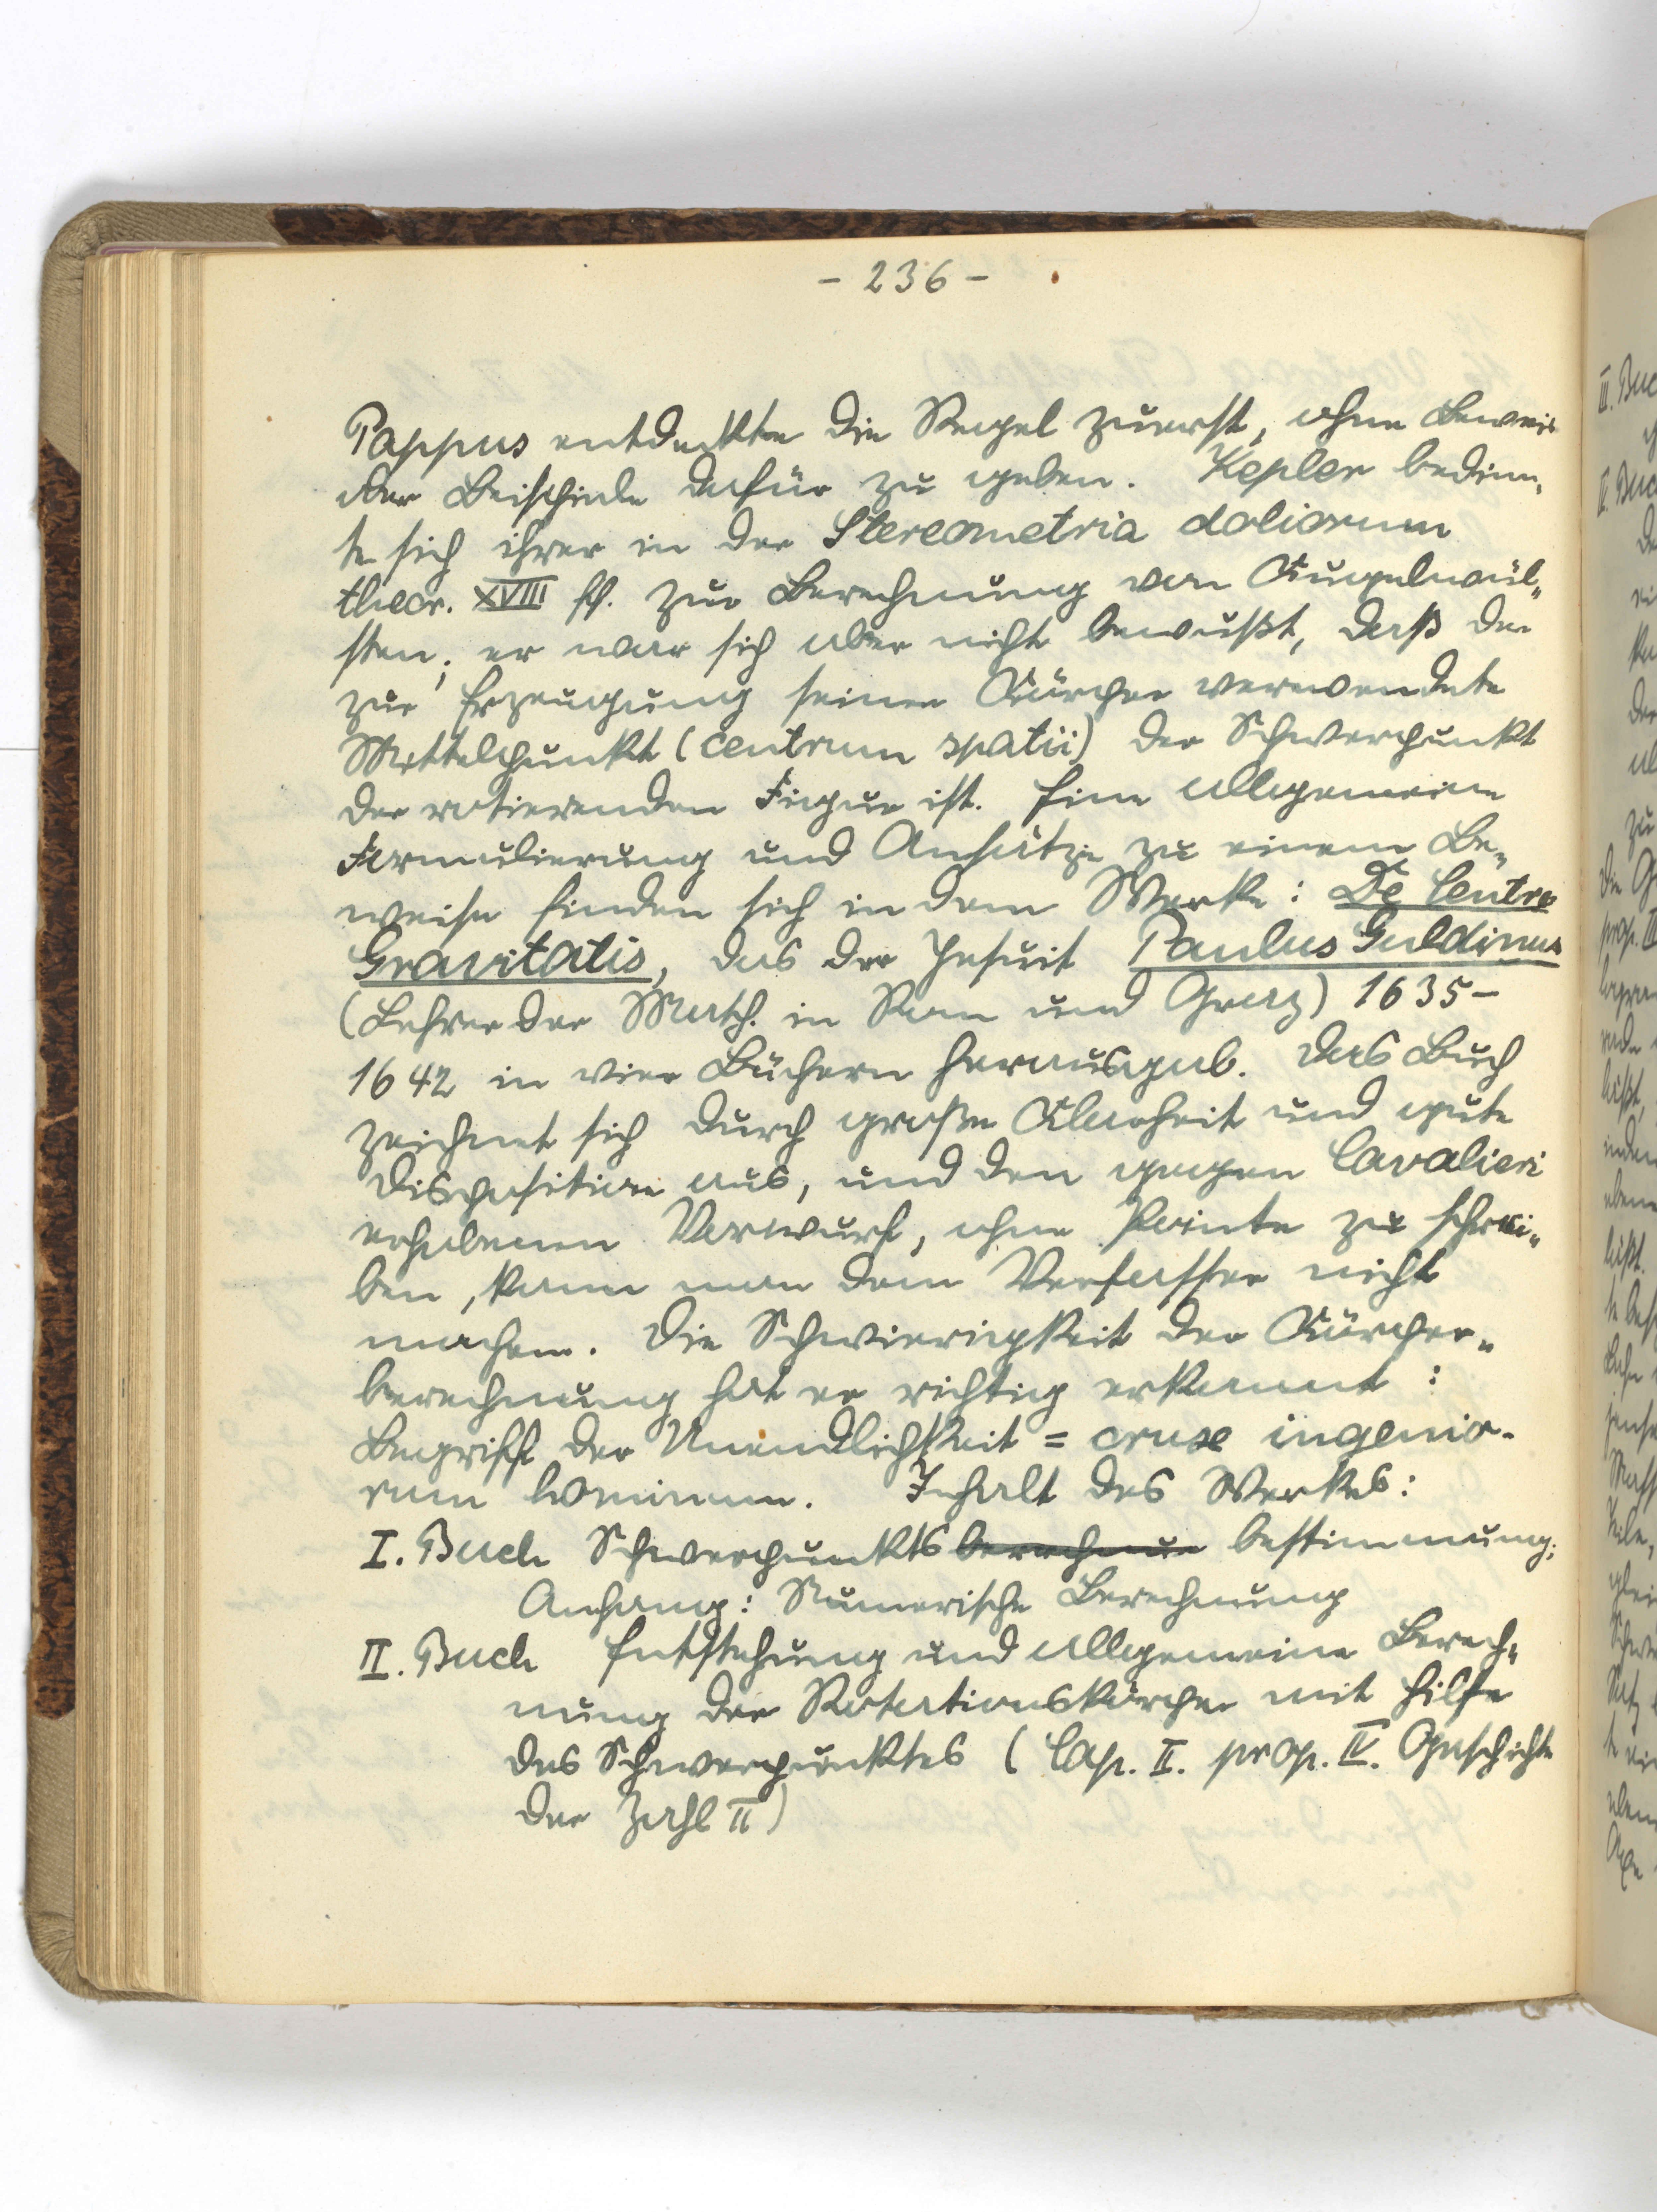 - 236 -
Pappus entdeckte die Regel zuerst, ohne Beweis
oder Beispiele dafür zu geben. Kepler bedien-
te sich ihrer in der Stereometria doliorum
theor. XVIII ff. zur Berechnung von Kugelwül-
sten; er war sich aber nicht bewußt, daß der
zur Erzeugung seiner Körper verwendete
Mittelpunkt (centrum spatii) der Schwerpunkt
der rotierenden Figur ist. Eine allgemeine
Formulierung und Ansätze zu einem Be-
weise finden sich in dem Werke: De Centro
Gravitatis, das der Jesuit Paulus Guldinus
(Lehrer der Math. in Rom und Graz) 1635-
1642 in vier Büchern herausgab. Das Buch
zeichnet sich durch große Klarheit und gute
Disposition aus, und den gegen Cavalieri
erhobenen Vorwurf, ohne Pointe zu schrei-
ben, kann man dem Verfasser nicht
machen. Die Schwierigkeit der Körper-
berechnung hat er richtig erkannt:
Begriff der Unendlichkeit = cruse ingenio-
rum hominum. Inhalt des Werkes:
I. Buch Schwerpunkts berechnun bestimmung;
Anhang: Numerische Berechnung
II. Buch Entstehung und allgemeine Berech-
nung der Rotationskörper mit Hilfe
des Schwerpunktes (Cap. II. prop. IV. Geschichte
der Zahl π)